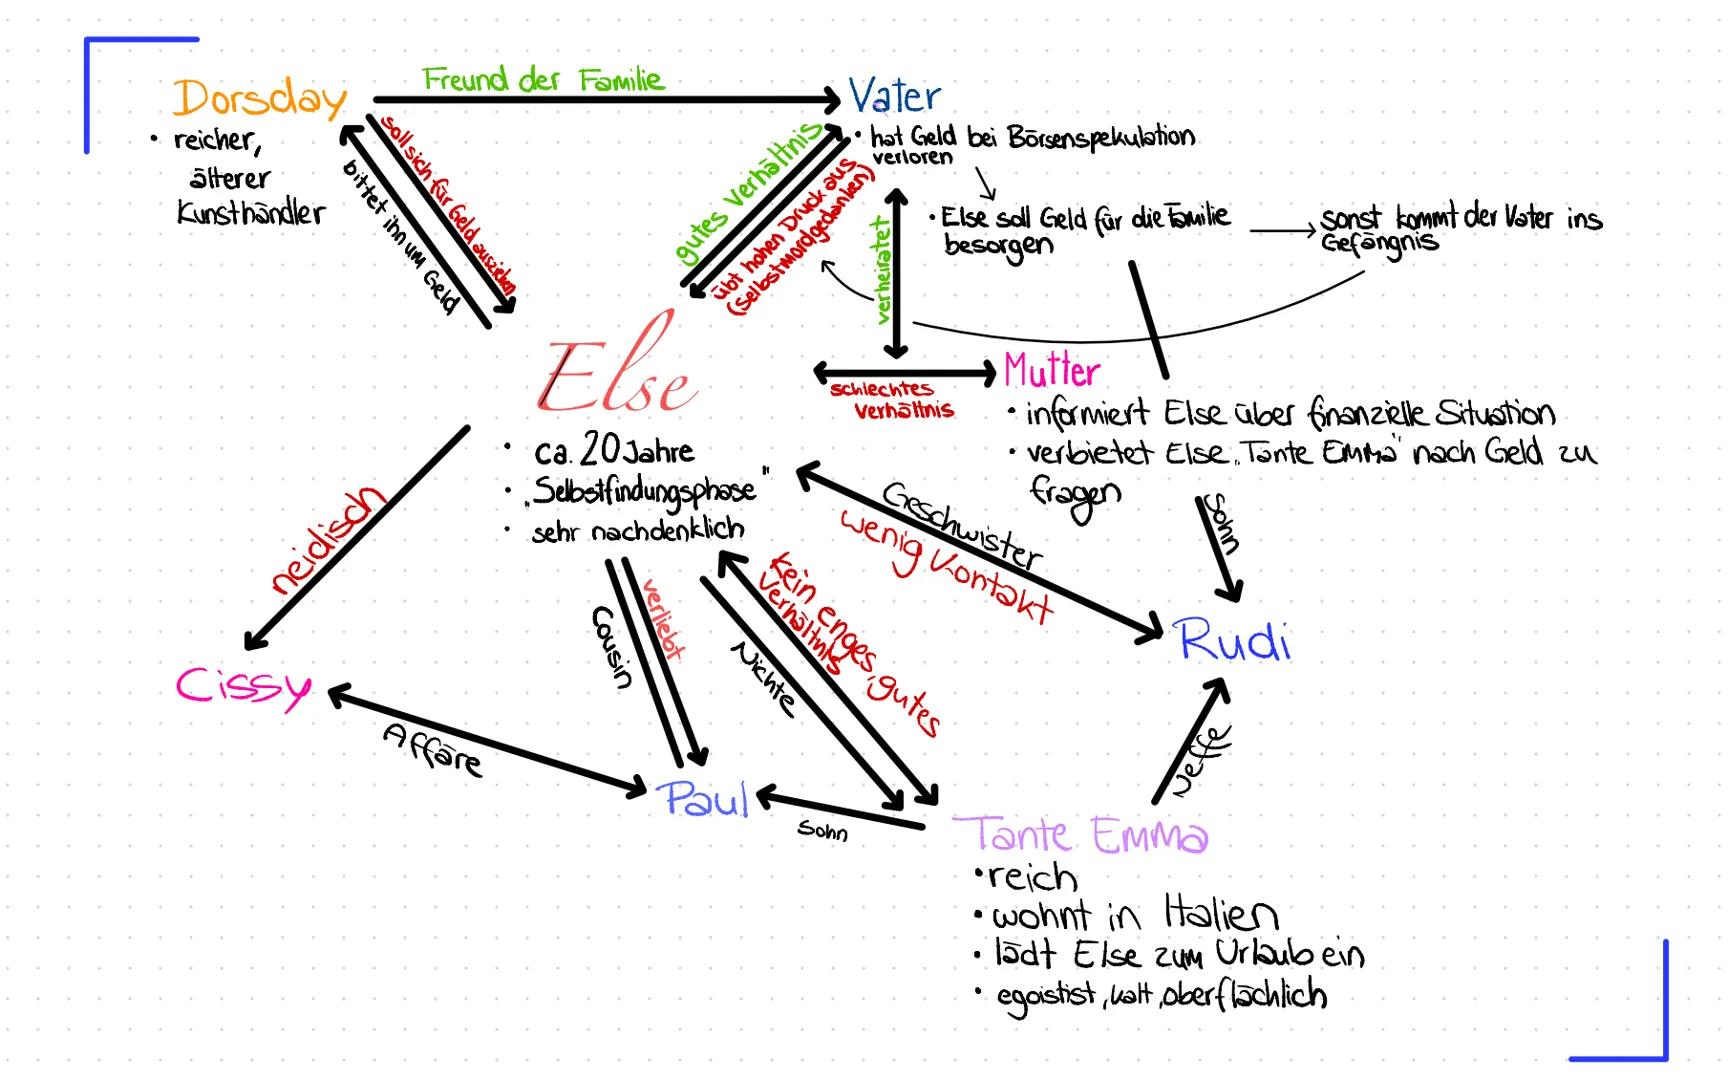 Freund der Familie
Dorsday
• reicher,
älterer
Kunsthändler
soll sich für Geld ausziehen
bittet ihn um Geld
Vater
• hat Geld bei Börsenspekulation
verloren
• Else soll Geld für die Familie
besorgen
sonst kommt der Vater ins
Gefängnis
gutes Verhältnis
übt hohen Druck aus
(Selbstmordgedanken)
verheiratet
Else
• ca. 20 Jahre
• „Selbstfindungsphase"
• sehr nachdenklich
schlechtes
Verhältnis
Mutter
• informiert Else über finanzielle Situation
• verbietet Else „Tante Emma" nach Geld zu
fragen
Sohn
Geschwister
wenig Kontakt
Rudi
neidisch
Cissy
Affäre
Cousin
verliebt
Paul
Nichte
Kein enges, gutes
Verhältnis
Sohn
Neffe
Tante Emma
• reich
• wohnt in Italien
• lädt Else zum Urlaub ein
• egoistist, kalt, oberflächlich